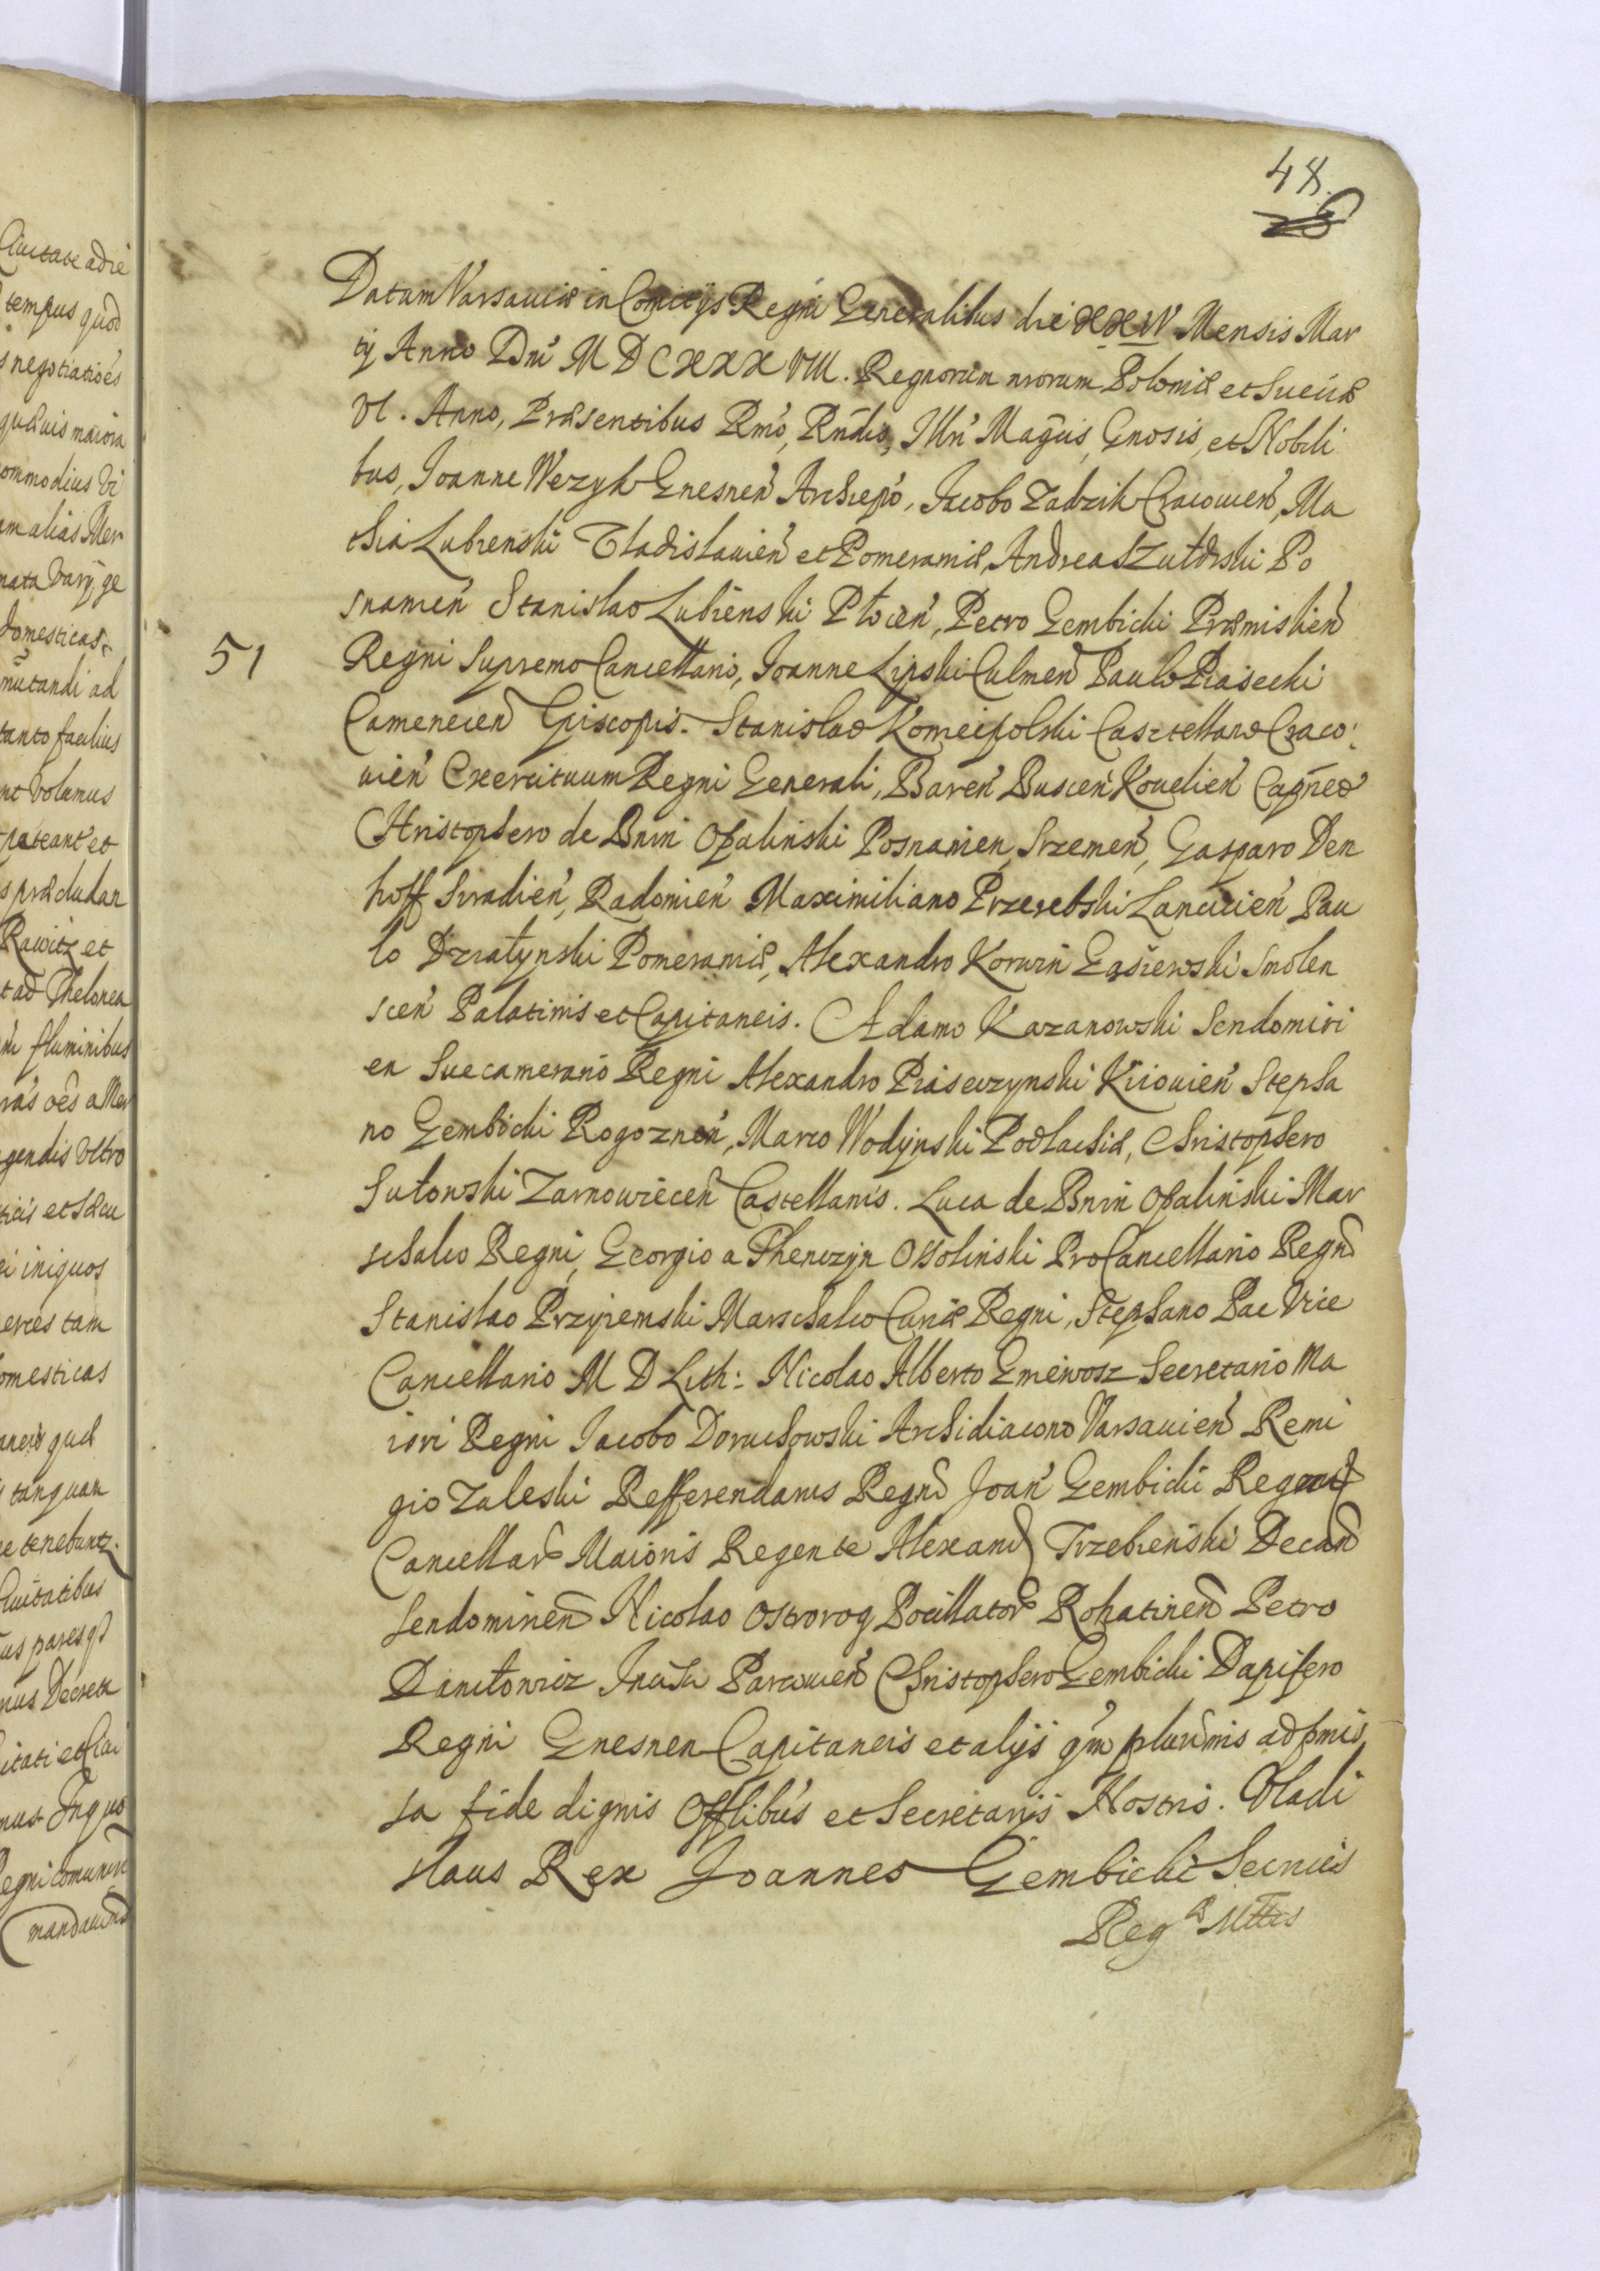 Ciuitate adie
tempus quod
s negotiatioes
quauis maiora
ommodius
am alias Mer
nata Varÿ ge
domesticas
mutandi ad
tanto facilius
nt Volumus
pateant et
s præcludan
Rawitz et
t ad Thelonea
fluminibus
ras oes a Mer
gendis Vltro
et sæcu
ei iniquos
erces tam
omesticas
quæ
tanquam
e tenebuntz.
Ciuitatibus
us pares qd
nus Decreta
itati et Ciui
nus. Inquo
Regni comuniri
mandauimus
48.
51
Datum Varsauiæ in Comitÿs Regni Generalibus die XXIV Mensis Mar
tÿ Anno Dni M D C XXX VIII. Regnorum nrorum Poloniæ et Sueciæ
VI. Anno, Præsentibus Rmo, Rndis, Illri Magcis, Gnosis, et Nobili
bus, Joanne Wezyk Gnesnen Archiepo, Jacobo Zadzik Cracouien, Ma
thia Lubienski Vladislauien et Pomeraniæ, Andrea Szułdrski Po
snanien Stanislao Lubienski Płocen, Petro Gembicki Præmislien
Regni Supremo Cancellario, Joanne Lipski Culmen Paulo Piasecki
Camenecen Episcopis. Stanislao Koniecpolski Casztellano Craco:
uien Exercituum Regni Generali, Baren Buscen Kouelien Capneo
Christophero de Bnin Opalinski Posnanien, Srzemen, Gasparo Den
hoff Siradien, Radomien Maximiliano Przerebski Lancicien Pau
lo Działynski Pomeraniæ, Alexandro Korwin Gąsiewski Smolen
scen Palatinis et Capitaneis. Adamo Kazanowski Sendomiri
en Succamerario Regni Alexandro Piaseczynski Kiiouien Stepha
no Gembicki Rogoznen, Marco Wodÿnski Podlachiæ, Christophero
Sułowski Zarnowiecen Castellanis. Luca de Bnin Opalinski Mar
schalco Regni, Georgio a Thenczÿn Ossolinski Pro Cancellario Regni
Stanislao Przÿiemski Marschalco Curiæ Regni, Stephano Pac Vice
Cancellario M D Lith: Nicolao Alberto Gniewosz Secretario Ma
iori Regni Jacobo Doruchowski Archidiacono Varsauien Remi
gio Zaleski Refferendarius Regni Joan Gembicki
Cancellar Maioris Regente Alexand Trzebienski Decano
Sendomirien Nicolao Ostrorog Pocillatore Rohatinen Petro
Daniłowicz Incisa Parcouien Christophero Gembicki Dapifero
Regni Gnesnen Capitaneis et alÿs qm plurimis ad pmis
sa fide dignis Offlibus et Secretarÿs Nostris. Vladi
slaus Rex Joannes Gembicki Secrius
Regæ Mttis